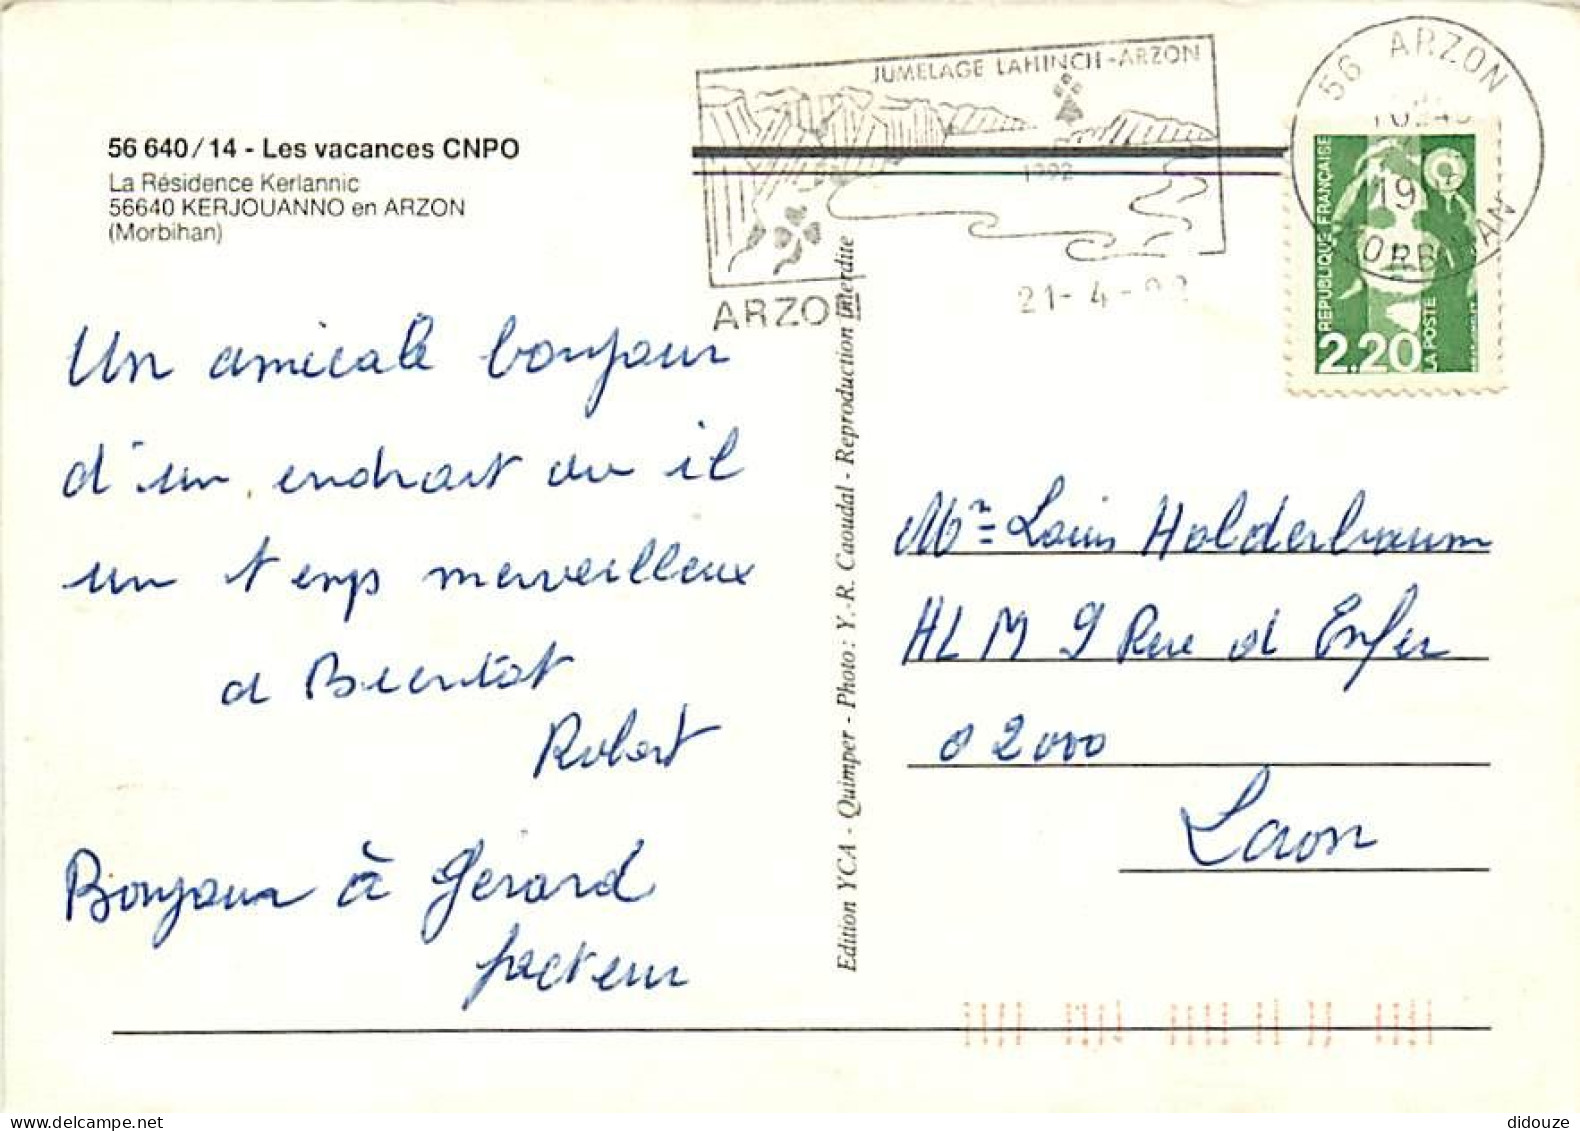 56 640/14 - Les vacances CNPO
La Résidence Kerlannic
56640 KERJOUANNO en ARZON
(Morbihan)
JUMELAGE LAHINCH-ARZON
1992
ARZON
21-4-92
56 ARZON
MORBIHAN
REPUBLIQUE FRANÇAISE
2,20
LA POSTE
Un amicale bonjour
d'un endroit ou il
un temps merveilleux
a Bientot
Robert
Bonjour à Gerard
facteur
Edition YCA - Quimper - Photo : Y.-R. Caoudal - Reproduction interdite
Mr Louis Holderbaum
HLM 9 Rue d Enfer
02000
Laon
didouze